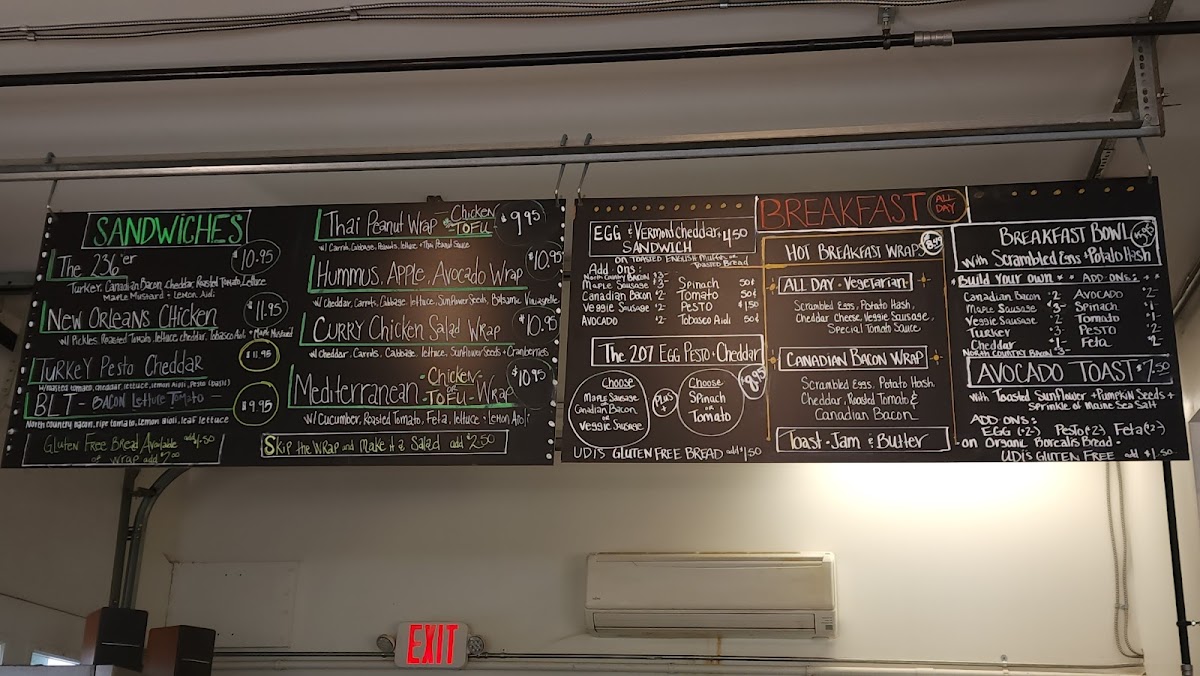 SANDWICHES
The 236'er
$10.95
Turkey, Canadian Bacon, Cheddar, Roasted Tomato, Lettuce
Maple Mustard + Lemon Aioli
New Orleans Chicken
$11.95
w/ Pickles, Roasted Tomato, lettuce, cheddar, Tobasco Aioli + Maple Mustard
Turkey Pesto Cheddar
$11.95
w/roasted tomato, cheddar, lettuce, lemon aioli, pesto (basil)
BLT - Bacon Lettuce Tomato -
$9.95
North country bacon, ripe tomato, lemon aioli, leaf lettuce
Gluten Free Bread Available add $1.50
or wrap add $2.00
Thai Peanut Wrap Chicken
or TOFU
$9.95
w/ Carrots, Cabbage, Peanuts, lettuce + Thai Peanut Sauce
Hummus, Apple, Avocado Wrap
$10.95
w/ Cheddar, Carrots, Cabbage, lettuce, Sunflower Seeds, Balsamic Vinaigrette
Curry Chicken Salad Wrap
$10.95
w/ Cheddar, Carrots, Cabbage, lettuce, Sunflower Seeds + Cranberries
Mediterranean - Chicken - Wrap
- TOFU -
$10.95
w/ Cucumber, Roasted Tomato, Feta, lettuce + Lemon Aioli
Skip the wrap and Make it a Salad add $2.50
BREAKFAST ALL DAY
EGG & Vermont cheddar $4.50
SANDWICH
on Toasted English Muffin or
Toasted Bread
Add ons:
North Country Bacon $3-
Maple Sausage $3- Spinach 50¢
Canadian Bacon $2- Tomato 50¢
Veggie Sausage $2- Pesto $1.50
Avocado $2- Tobasco Aioli 50¢
The 207 Egg Pesto + Cheddar
$8.95
Choose
Maple Sausage
Canadian Bacon
or
Veggie Sausage
Plus
+
Choose
Spinach
or
Tomato
UDI'S GLUTEN FREE BREAD add $1.50
HOT BREAKFAST WRAPS
ALL DAY - Vegetarian -
Scrambled Eggs, Potato Hash,
Cheddar Cheese, Veggie Sausage,
Special Tomato Sauce
CANADIAN BACON WRAP
Scrambled Eggs, Potato Hash
Cheddar, Roasted Tomato &
Canadian Bacon
Toast - Jam & Butter
BREAKFAST BOWL
with Scrambled Eggs + Potato Hash
Build Your own * * Add ons: * *
Canadian Bacon $2- Avocado $2-
Maple Sausage $3- Spinach $1-
Veggie Sausage $2- Tomato $1-
Turkey $3- Pesto $2-
Cheddar $1- Feta $2-
North Country Bacon $3-
AVOCADO TOAST $7.50
with Toasted Sunflower + Pumpkin Seeds +
Sprinkle of Maine Sea Salt
ADD ONS:
EGG ($2-) Pesto ($2-) Feta ($2-)
- on Organic Borealis Bread -
UDI'S GLUTEN FREE add $1.50
EXIT